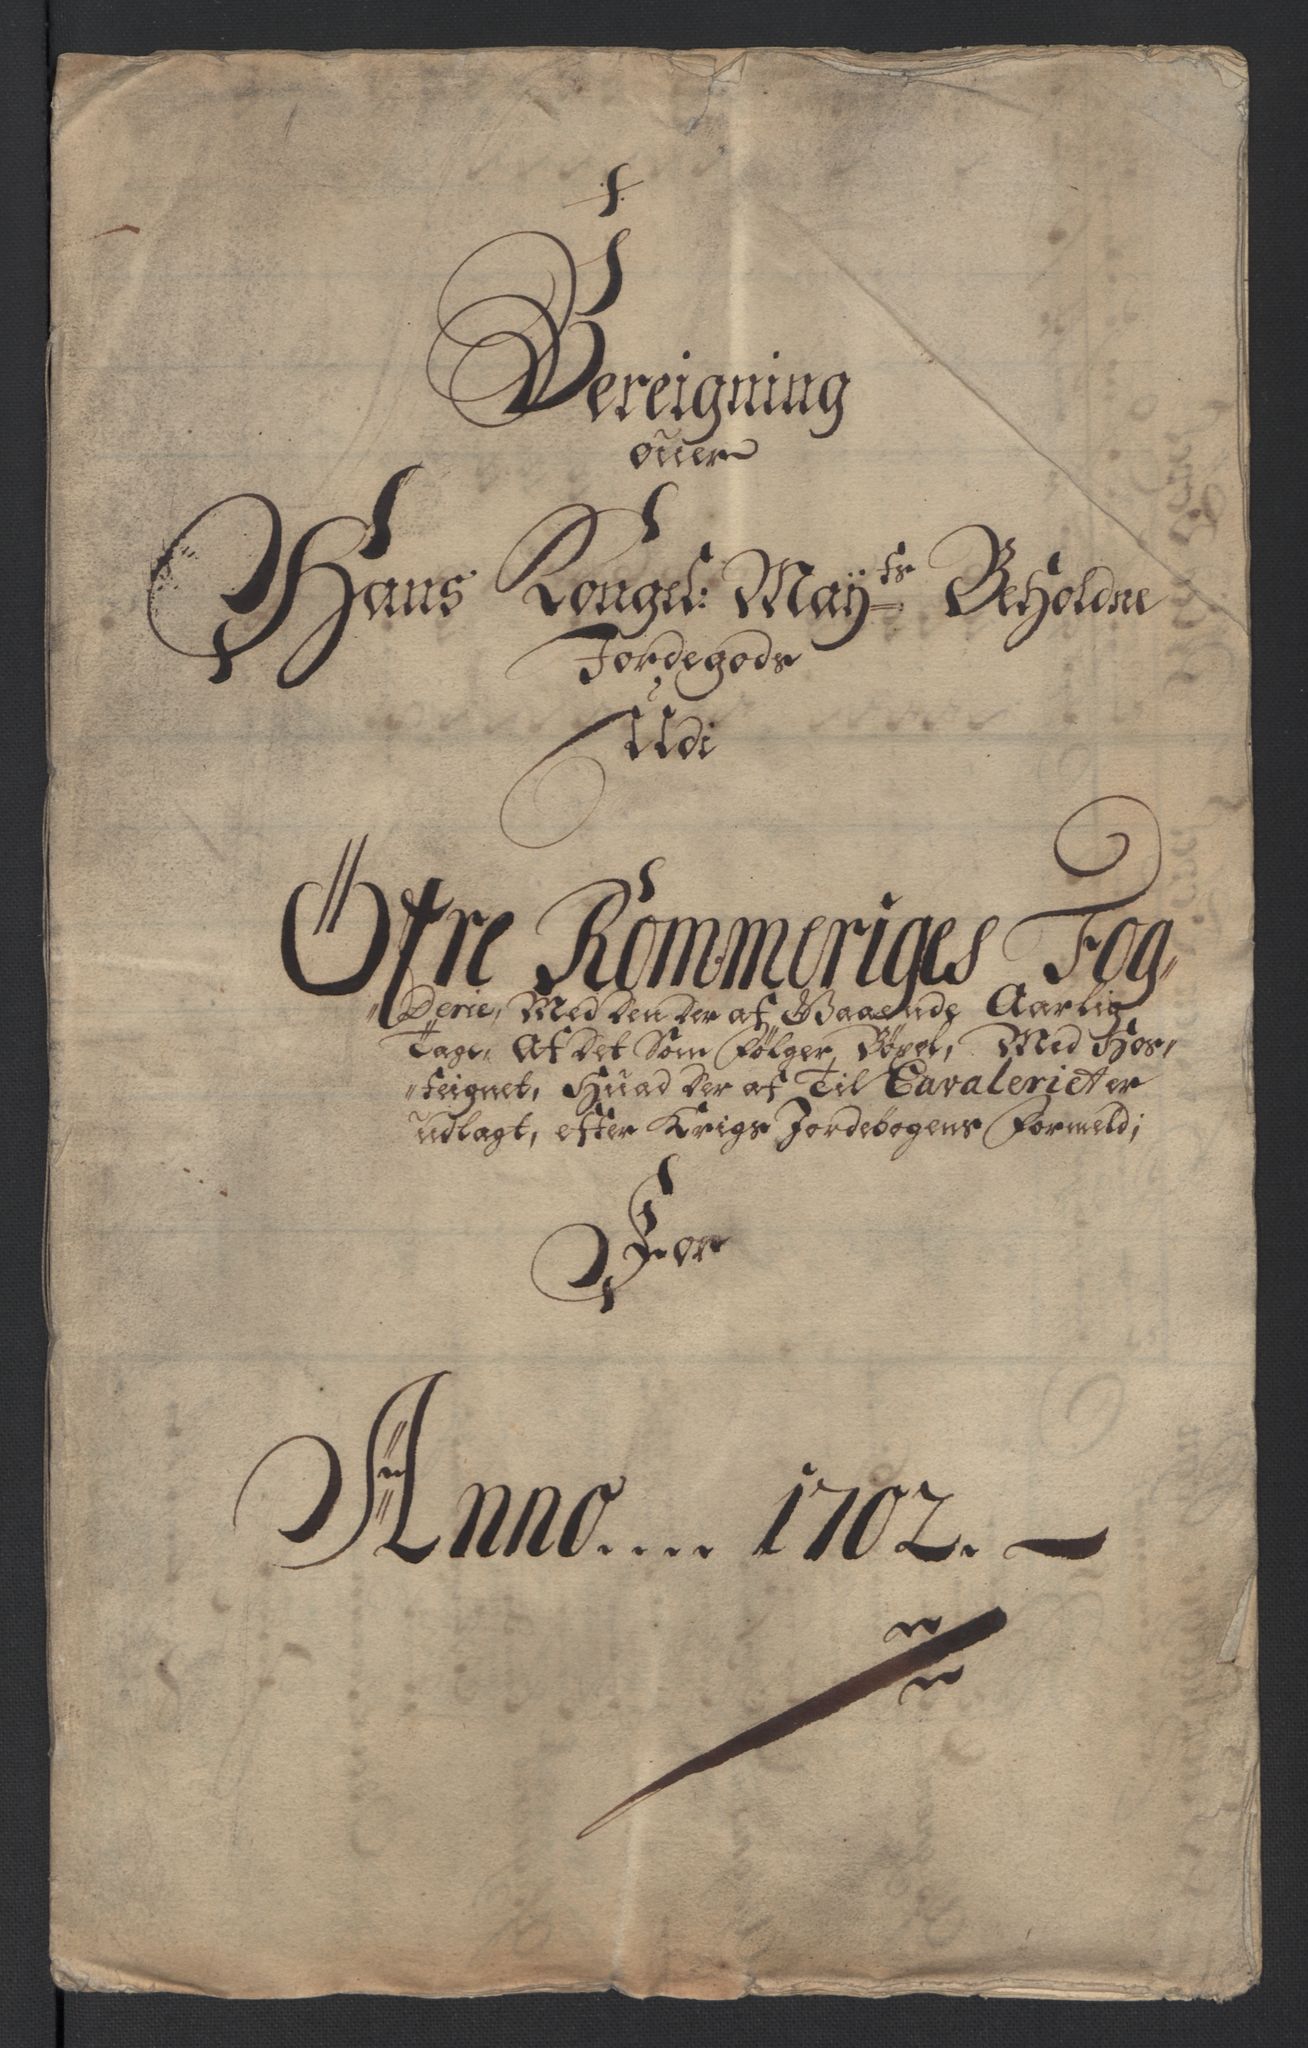 Bereigning
ouer
Hans Kongel: Maÿts Beholdne
Jordegods
Udi
Öfre Rommeriges Fog„
„Derie, Med den der af Gaaende Aarlig
Tage, Af det Som følger, Med Hos„
„teignet, Huad der af Til Cavaleriet er
udlagt, efter Krigs Jordebogens formeld;
For
Anno.... 1702.